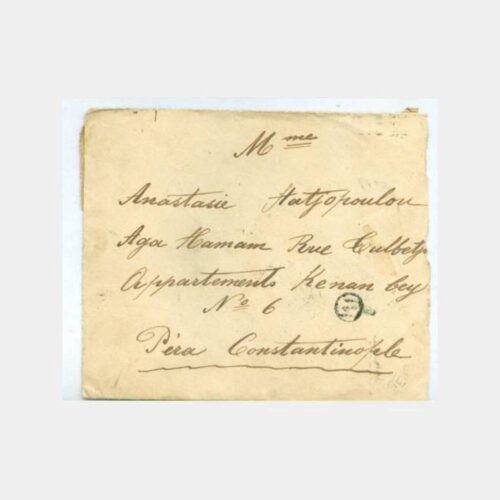 Mme
Anastasie Hatjopoulou
Aga Hamam Rue Culbetji
Appartements Kenan bey
No 6
Péra Constantinople